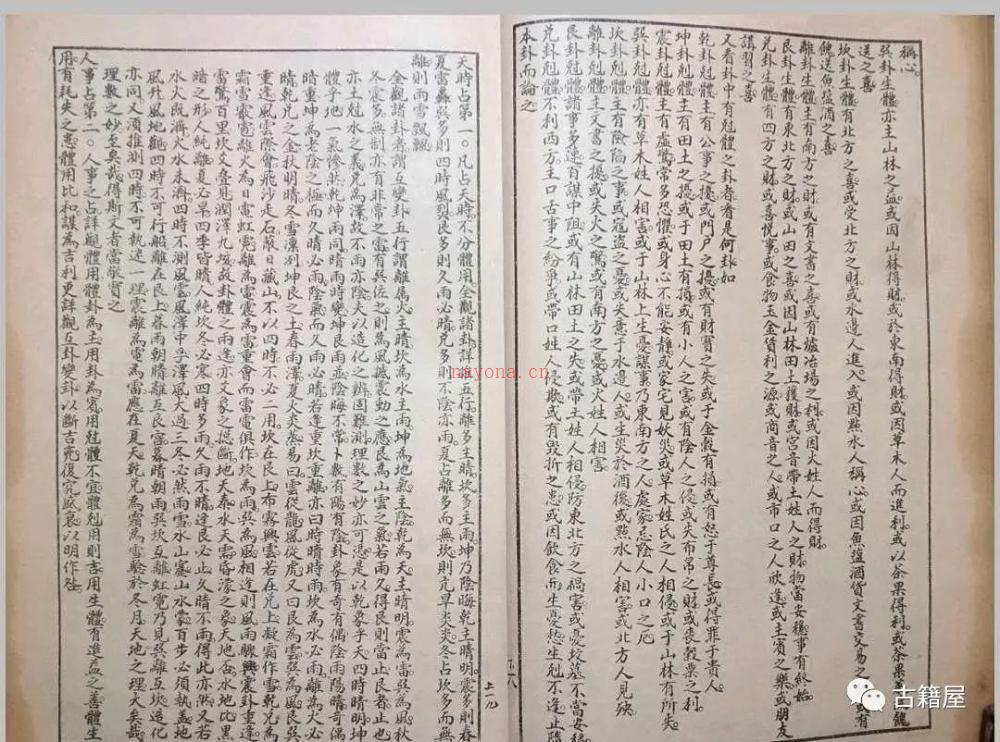 稱心
巽卦生體亦主山林之益或因山林得財或於東南得財或因草木人而進利或以茶果得利或茶果菜蔬餽
送之喜
坎卦生體有北方之喜或受北方之財或水邊人進入或因點水人稱心或因魚塩酒貨文書交易之
餽送魚塩酒之喜
離卦生體主有南方之財或有文書之喜或有爐冶場之利或因火姓人而得財
艮卦生體有東北方之財或山田之喜或因山林田土獲財或宮音帶土姓人之財物當安穩事有終始
兌卦生體有西方之財或喜悅事或食物玉金貨利之源或商音之人或市口之人欣逢或主賓之樂或朋友
講習之喜
又看卦中有尅體之卦者看是何卦如
乾卦尅體主有公事之擾或門戶之擾或有財寶之失或于金穀有損或有怒于尊長或得罪于貴人
坤卦尅體主有田土之擾或于田土有損或有小人之害或有陰人之侵或失布帛之財或喪穀粟之利
震卦尅體主有虛驚常多恐懼或身心不能安靜或家宅見妖災或草木姓氏之人相侵或于山林有所失
巽卦尅體亦有草木姓人相害或于山林上生憂謀事乃東南方之人處家忌陰人小口之厄
坎卦尅體主有險陷之事或寇盜之憂或失意于水邊人或生災於酒後或點水人相害或北方人見殃
離卦尅體主文書之擾或失火之驚或有南方之憂或火姓人相害
艮卦尅體諸事多違百謀中阻或有山林田土之失或帶土姓人相侵防東北方之禍害或憂坟墓不當安穩
兌卦尅體不利西方主口舌事之紛爭或帶口姓人侵欺或有毀折之患或因飲食而生憂愁生尅不逢止隨
本卦而論之
天時占第一凡占天時不分體用全觀諸卦詳明五行離多主晴坎多主雨坤乃陰晦乾主晴明震多則春
夏雷轟巽多則四時風烈艮多則久雨必晴兌多則不陰亦雨夏占離多而無坎則亢旱炎炎冬占坎多而無
離則雨雪飄飄
全觀諸卦者謂互變卦五行謂離屬火主晴坎為水主雨坤為地氣主陰乾為天主晴明震為雷巽為風秋
冬震多無制亦有非常之雷有巽佐之則為風撼雷動之應艮為山雲之氣若雨久得艮則當止艮者止也
亦土尅水之義兌為澤故不雨亦陰夫以造化之辨固難測理數之妙亦可憑是以乾象乎天四時晴明坤
體乎地一氣慘然乾坤兩同晴雨時變坤艮兩並陰晦不常卜數有陽有陰卦象有奇有偶陰雨陽晴奇偶
暗重坤為老陰之極而久晴必雨陰氣久而久雨必晴若逢重坎重離亦曰時晴時雨坎為水必雨離為火必
晴乾兌之金秋明晴冬雪凜冽坤艮之土春雨澤夏火炎蒸易曰雲從龍風從虎又曰艮為雲巽為風艮巽
重逢風雲際會飛沙走石蔽日藏山不以四時不必二用坎在艮上布霧興雲若在兌上凝霜作雪乾兌為
霜雪霰雹離火為日電虹霓離為電震為雷重會而雷電俱作坎為雨巽為風相逢則風雨驟興震卦重逢
雷驚百里坎爻疊見潤澤九垓故卦體之兩逢亦爻象之總斷地天泰水天需昏濛之象天地否水地比黑
暗之形八純離夏必旱四季皆晴八純坎冬必寒四時多雨久雨不晴逢艮必止久晴不雨得此亦然又若
水火既濟火水未濟四時不測風雲風澤中孚澤風大過三冬必然雨雪水山蹇山水蒙百步必須執蓋地
風升風地觀四時不可行船離在艮上暮雨朝晴離互艮宮暮晴朝雨巽坎互離虹霓乃見巽離互坎造化
亦同又須推測四時不可執迷一理震離為電為雷應在夏天乾兌為霜為雪驗於冬月天地之理大矣哉
理數之妙至矣哉得斯文者當敬寶之
人事占第二人事之占詳觀體用體卦為主用卦為賓用尅體不宜體尅用則吉用生體有進益之善體生
用有耗失之患體用比和謀為吉利更詳觀互卦變卦以斷吉凶復究盛衰以明作咎
上一九
nayona.cn
古籍屋